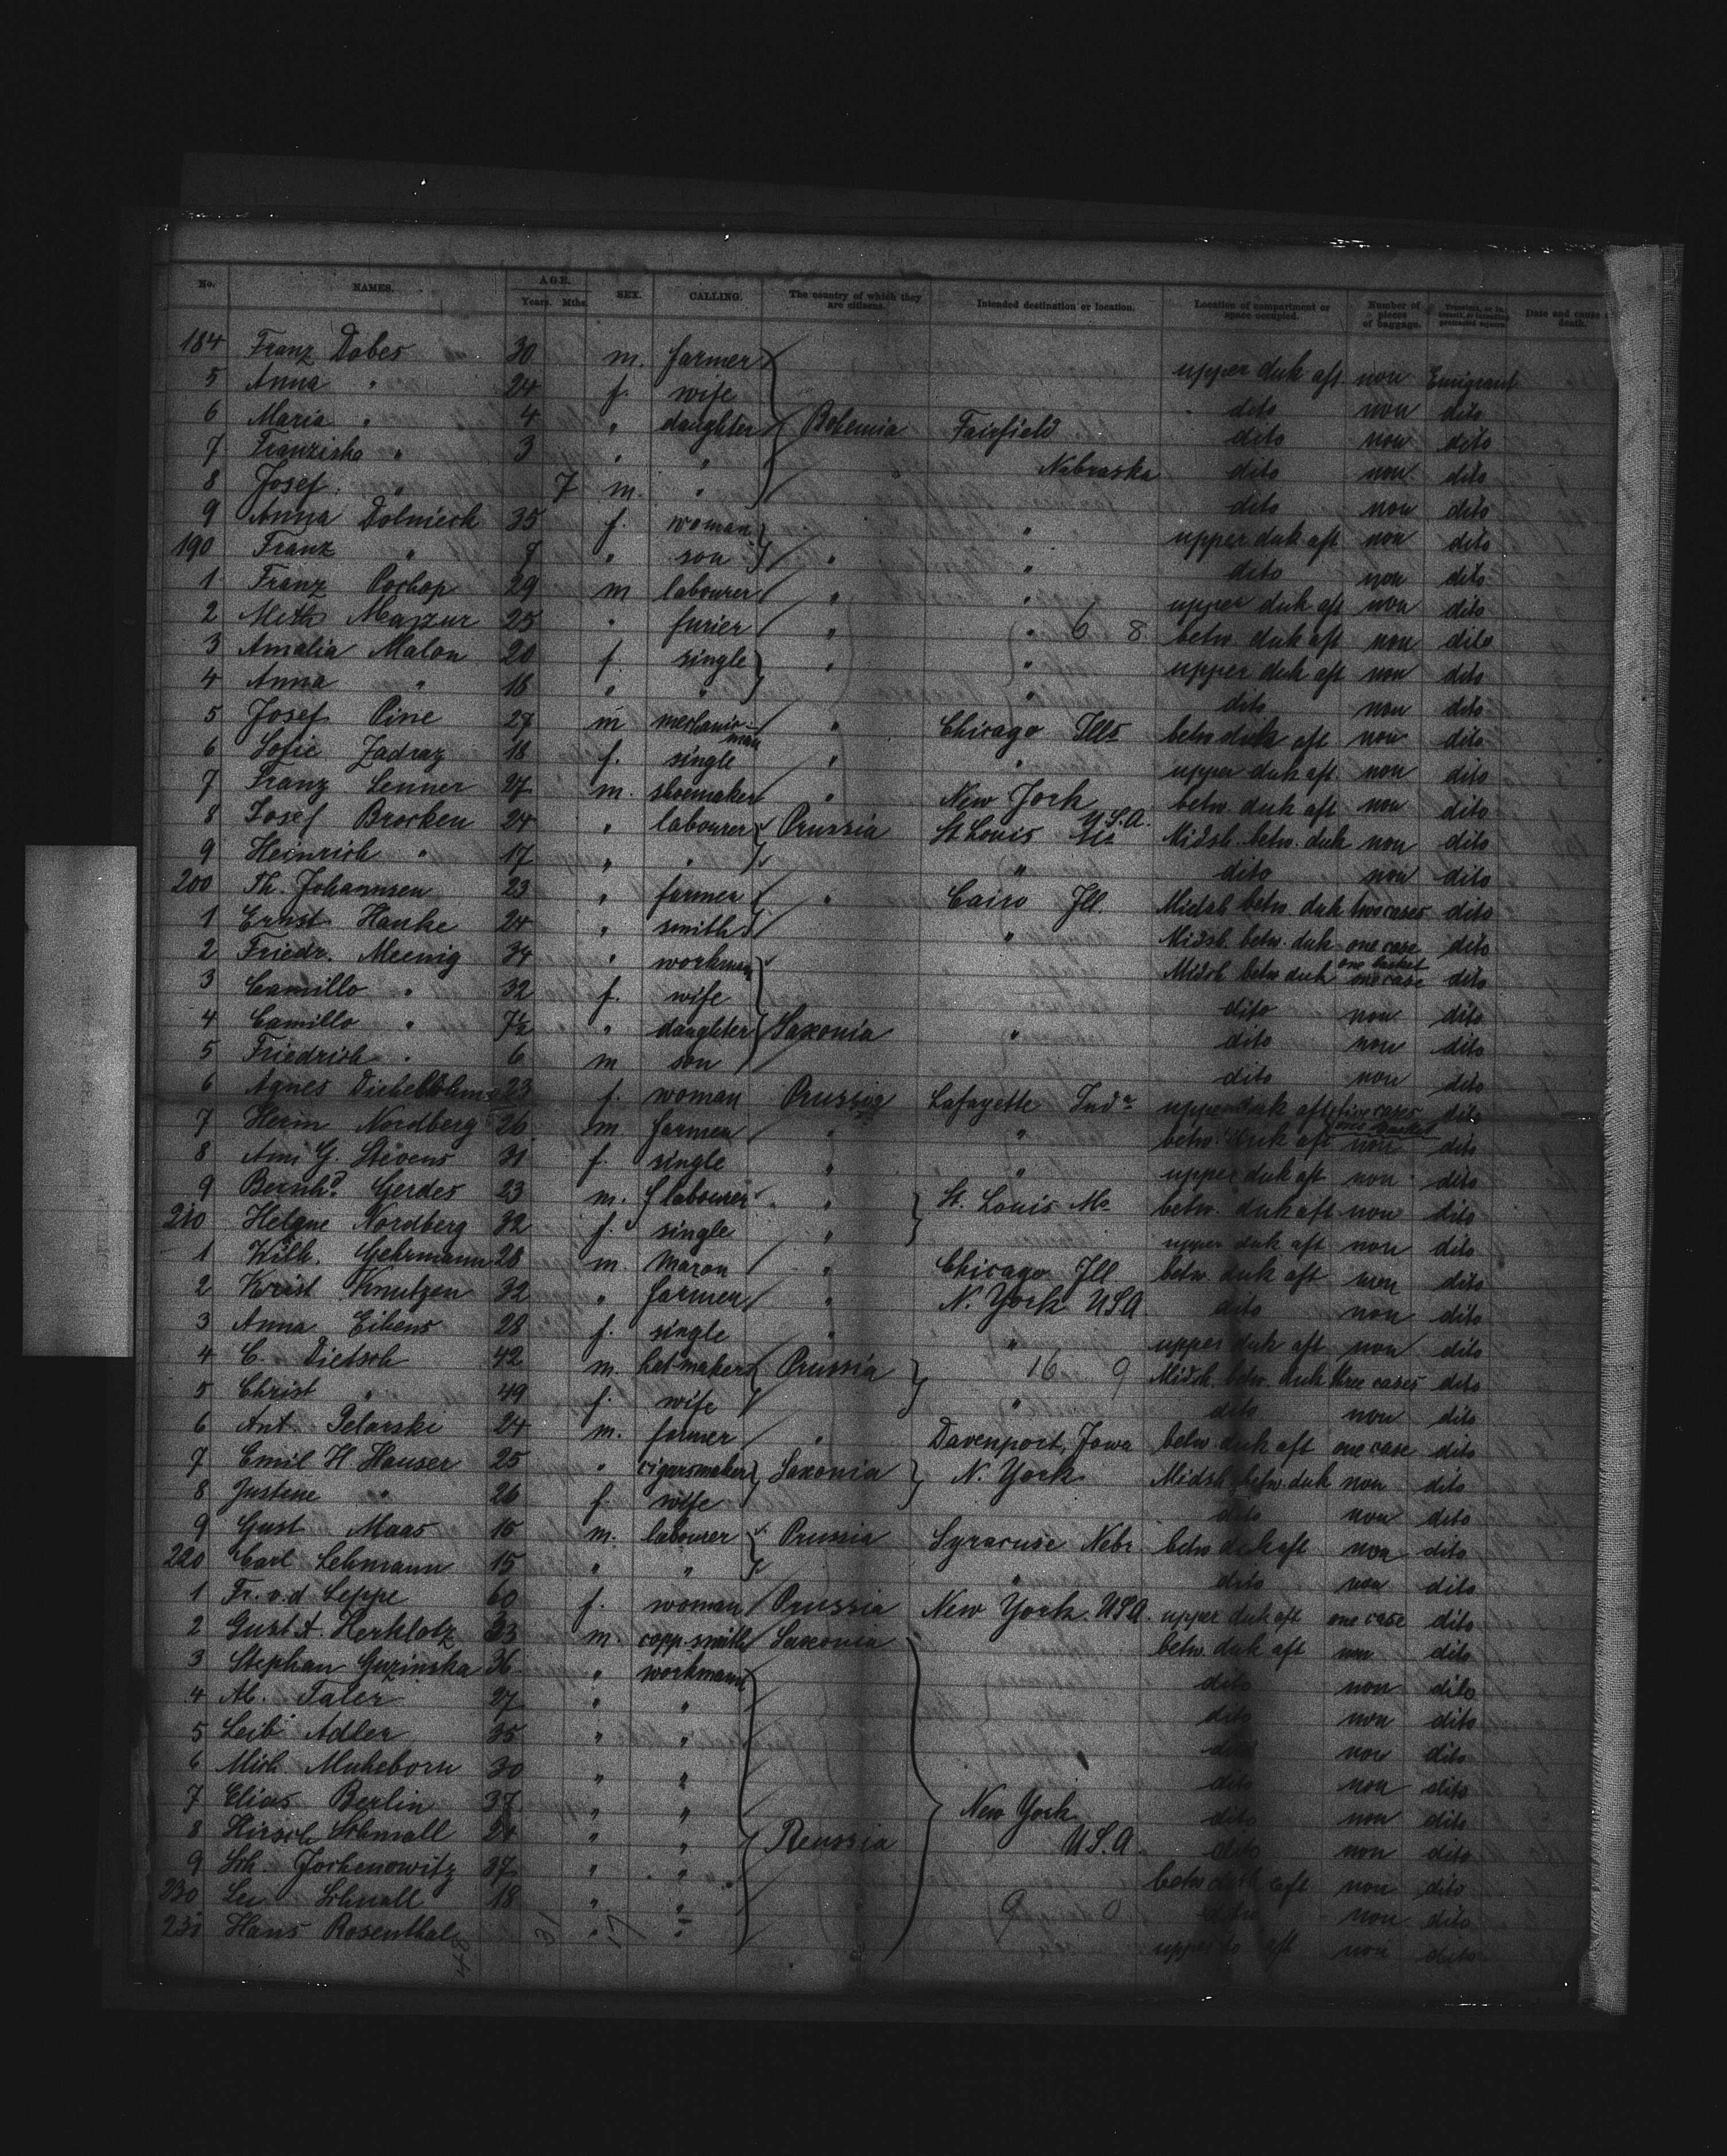 No. NAMES. AGE. Years. Mths. SEX. CALLING. The country of which they are citizens. Intended destination or location. Location of compartment or space occupied. Number of pieces of baggage. Date and cause death.
184 Franz Dobes 30 m. farmer upper duk aft non Emigrant
5 Anna " 24 f. wife dito non dito
6 Maria " 4 " daughter Bohemia Fairfield dito non dito
7 Franziska " 3 " " Nebraska dito non dito
8 Josef " 7 m. " dito non dito
9 Anna Dolniech 35 f. woman " upper duk aft non dito
190 Franz " 8 " son " " dito non dito
1 Franz Pochop 29 m labourer " " upper duk aft non dito
2 Meth Mapzur 25 " furier " " 6 8 betw. duk aft non dito
3 Amalia Malon 20 f. single " " upper duk aft non dito
4 Anna " 18 " " " dito non dito
5 Josef Pine 28 m mechanic-man " Chicago Ills betw duk aft non dito
6 Sofie Zadraz 18 f. single " " upper duk aft non dito
7 Franz Lenner 27 m. shoemaker " New York U.S.A. betw. duk aft non dito
8 Josef Brocken 24 " labourer Prussia St Louis Midsh. betw. duk non dito
9 Heinrich " 17 " " " dito non dito
200 Th. Johannsen 23 " farmer " Cairo Ill. Midsh betw. duk two cases dito
1 Ernst Hanke 24 " smith " Midsh. betw. duk one case dito
2 Friedr. Meenig 34 " workman Midsh betw duk one basket one case dito
3 Camillo " 32 f. wife dito non dito
4 Camillo " 7½ " daughter Saxonia " dito non dito
5 Friedrich " 6 m son dito non dito
6 Agnes 23 f. woman Prussia Lafayette Inda upper duk aft cases one basket dito
7 Herm Nordberg 26 m farmer " " betw. duk aft non dito
8 Ami G. Stevens 31 f. single " " upper duk aft non dito
9 Bernhd. Gerdes 23 m. labourer " St. Louis Mo betw. duk aft non dito
210 Helene Nordberg 32 f. single " upper duk aft non dito
1 Wilh. Gehrmann 28 m. mason " Chicago Ill betw. duk aft non dito
2 Krist Knutzen 32 " farmer " N. York USA dito non dito
3 Anna Eikens 28 f. single " " upper duk aft non dito
4 C. Dietsch 42 m. hat maker Prussia 16 9 Midsh. betw. duk three cases dito
5 Christ " 49 f. wife " dito non dito
6 Ant. Pelarski 24 m. farmer " Davenport, Iowa betw duk aft one case dito
7 Emil H. Hauser 25 " cigarsmaker Saxonia N. York Midsh betw. duk non dito
8 Justine " 26 f. wife dito non dito
9 Gust Maas 15 m. labourer Prussia Syracuse Nebr betw duk aft non dito
220 Carl Lehmann 15 " " " dito non dito
1 Fr. v.d Leppe 60 f. woman Prussia New York. USA. upper duk aft one case dito
2 Gust A. Herklotz 33 m. copp.smith Saxonia betw. duk aft non dito
3 Stephan Guzinska 36 " workmann dito non dito
4 Ab. Taler 27 " " dito non dito
5 Leib Adler 35 " " dito non dito
6 Mich Mukeborn 30 " " dito non dito
7 Elias Berlin 37 " " New York dito non dito
8 Hirsch Schmall 24 " " Reussia U.S.A. dito non dito
9 Sch. Jochenowitz 37 " " betw duk aft non dito
230 Lei Schnall 18 " " 9 0 dito non dito
231 Hans Rosenthal 31 " 17 " upper aft non dito
48